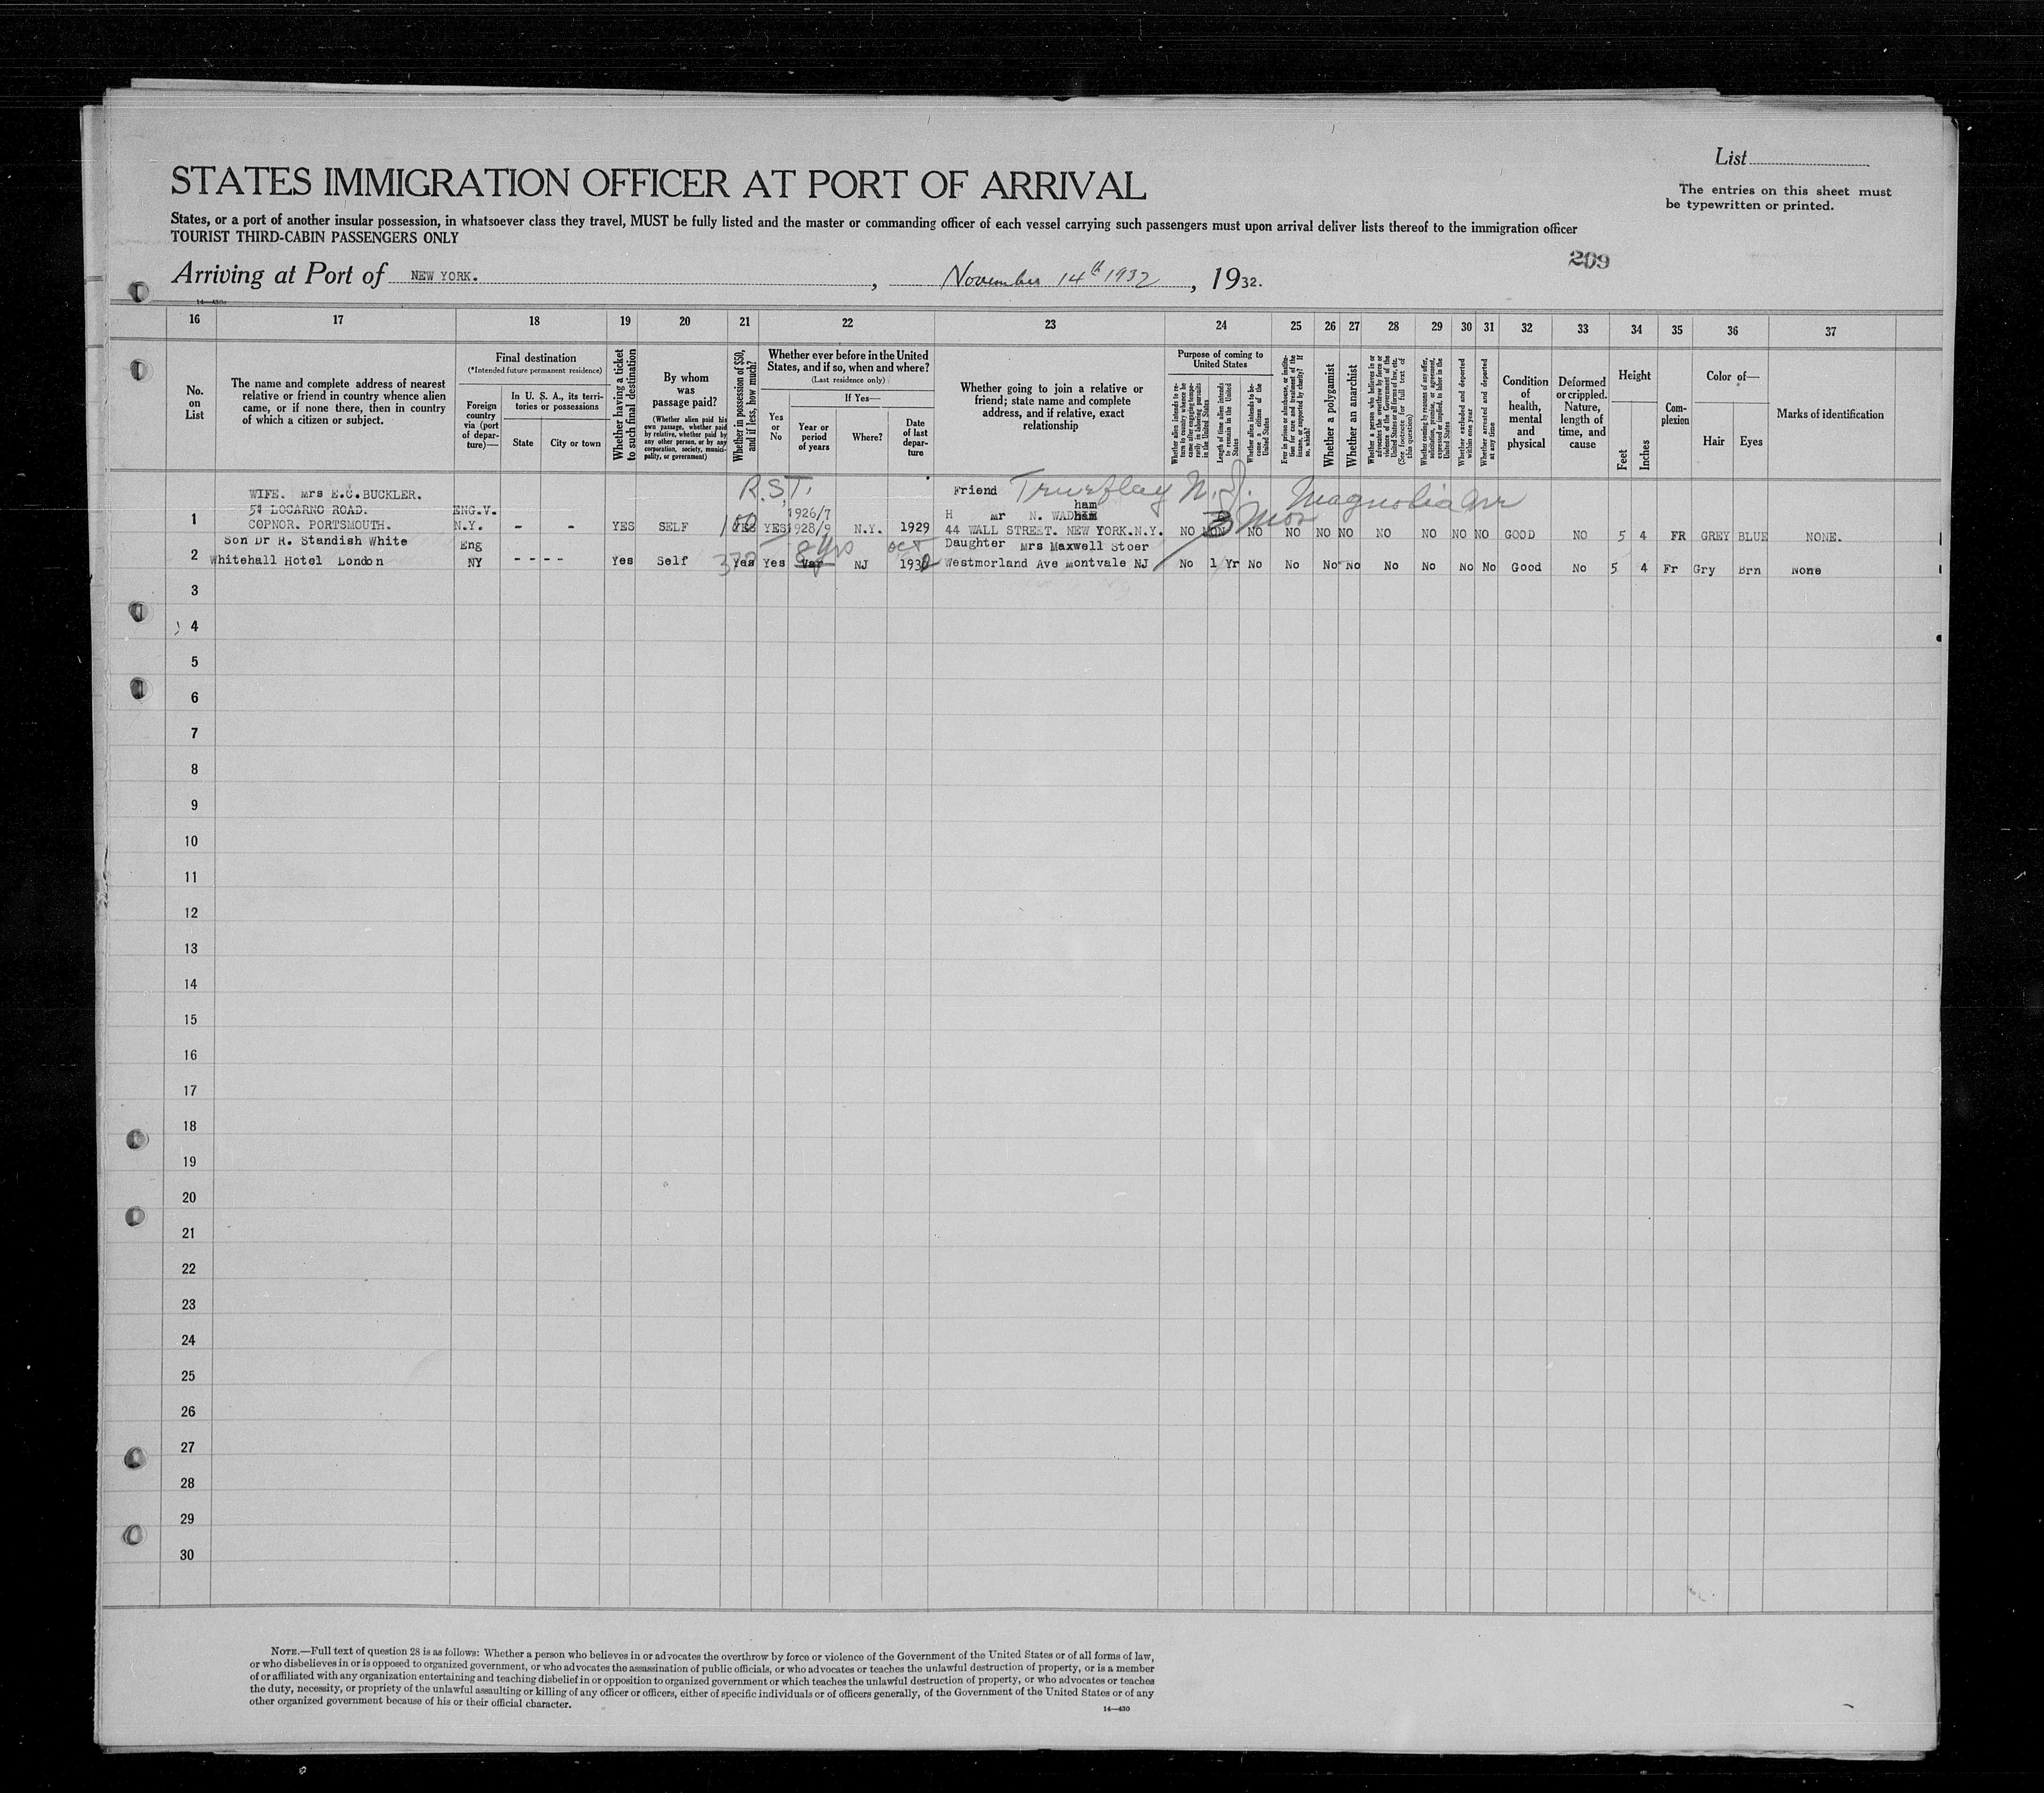 List
STATES IMMIGRATION OFFICER AT PORT OF ARRIVAL
The entries on this sheet must
be typewritten or printed.
States, or a port of another insular possession, in whatsoever class they travel, MUST be fully listed and the master or commanding officer of each vessel carrying such passengers must upon arrival deliver lists thereof to the immigration officer
TOURIST THIRD-CABIN PASSENGERS ONLY
209
Arriving at Port of NEW YORK. , November 14th 1932 , 1932.
16 17 18 19 20 21 22 23 24 25 26 27 28 29 30 31 32 33 34 35 36 37
No.
on
List
The name and complete address of nearest
relative or friend in country whence alien
came, or if none there, then in country
of which a citizen or subject.
Final destination
(*Intended future permanent residence)
Foreign
country
via (port
of depar-
ture)—
In U. S. A., its terri-
tories or possessions
State
City or town
Whether having a ticket
to such final destination
By whom
was
passage paid?
(Whether alien paid his
own passage, whether paid
by relative, whether paid by
any other person, or by any
corporation, society, munici-
pality, or government)
Whether in possession of $50,
and if less, how much?
Whether ever before in the United
States, and if so, when and where?
(Last residence only)
Yes
or
No
If Yes—
Year or
period
of years
Where?
Date
of last
depar-
ture
Whether going to join a relative or
friend; state name and complete
address, and if relative, exact
relationship
Purpose of coming to
United States
Whether alien intends to re-
turn to country whence he
came after engaging tempo-
rarily in laboring pursuits
in the United States
Length of time alien intends
to remain in the United
States
Whether alien intends to be-
come a citizen of the
United States
Ever in prison or almshouse, or institu-
tion for care and treatment of the
insane, or supported by charity? If
so, which?
Whether a polygamist
Whether an anarchist
Whether a person who believes in or
advocates the overthrow by force or
violence of the Government of the
United States or all forms of law, etc.
(See footnote for full text of
this question)
Whether coming by reasons of any offer,
solicitation, promise, or agreement,
expressed or implied, to labor in the
United States
Whether excluded and deported
within one year
Whether arrested and deported
at any time
Condition
of
health,
mental
and
physical
Deformed
or crippled.
Nature,
length of
time, and
cause
Height
Feet
Inches
Com-
plexion
Color of—
Hair
Eyes
Marks of identification
R.S.T.
WIFE. Mrs E.C.BUCKLER. Friend N.J. Magnolia Ave
LOCARNO ROAD. ENG.V. 1926/7 H Mr N. WADHAM ham
1 COPNOR. PORTSMOUTH. N.Y. - - YES SELF 100 YES YES 1928/9 N.Y. 1929 44 WALL STREET. NEW YORK.N.Y. NO 3 Mos NO NO NO NO NO NO NO NO GOOD NO 5 4 FR GREY BLUE NONE.
Son Dr R. Standish White Eng 8 yrs Oct Daughter Mrs Maxwell Stoer
2 Whitehall Hotel London NY ---- Yes Self Yes Yes Var NJ 1930 Westmorland Ave Montvale NJ No 1 Yr No No No No No No No No Good No 5 4 Fr Gry Brn None
3
4
5
6
7
8
9
10
11
12
13
14
15
16
17
18
19
20
21
22
23
24
25
26
27
28
29
30
NOTE.—Full text of question 28 is as follows: Whether a person who believes in or advocates the overthrow by force or violence of the Government of the United States or of all forms of law,
or who disbelieves in or is opposed to organized government, or who advocates the assassination of public officials, or who advocates or teaches the unlawful destruction of property, or is a member
of or affiliated with any organization entertaining and teaching disbelief in or opposition to organized government or which teaches the unlawful destruction of property, or who advocates or teaches
the duty, necessity, or propriety of the unlawful assaulting or killing of any officer or officers, either of specific individuals or of officers generally, of the Government of the United States or of any
other organized government because of his or their official character.
14—430